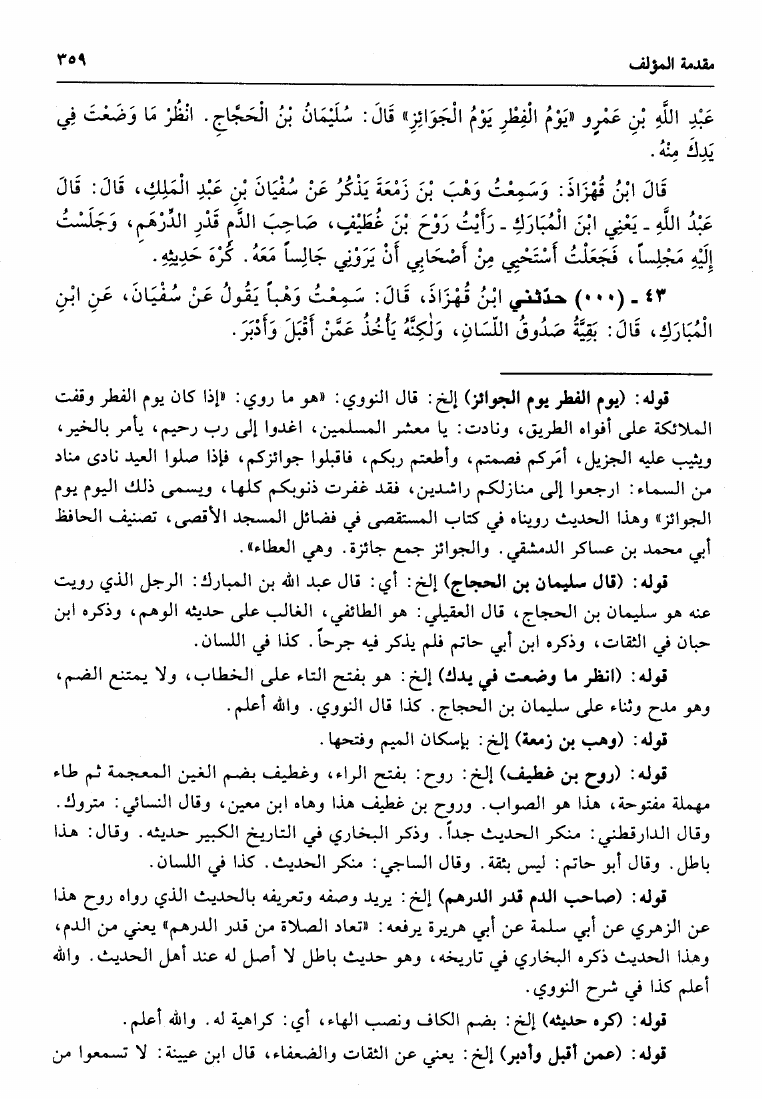 مقدمة المؤلف ٣٥٩
عَبْدِ اللَّهِ بْنِ عَمْرٍو «يَوْمُ الْفِطْرِ يَوْمُ الْجَوَائِزِ» قَالَ: سُلَيْمَانُ بْنُ الْحَجَّاجِ. انْظُرْ مَا وَضَعْتَ فِي
يَدِكَ مِنْهُ.
قَالَ ابْنُ قُهْزَاذَ: وَسَمِعْتُ وَهْبَ بْنَ زَمْعَةَ يَذْكُرُ عَنْ سُفْيَانَ بْنِ عَبْدِ الْمَلِكِ، قَالَ: قَالَ
عَبْدُ اللَّهِ ـ يَعْنِي ابْنَ الْمُبَارَكِ ـ رَأَيْتُ رَوْحَ بْنَ غُطَيْفٍ، صَاحِبَ الدَّمِ قَدْرِ الدِّرْهَمِ، وَجَلَسْتُ
إِلَيْهِ مَجْلِساً، فَجَعَلْتُ أَسْتَحْيِي مِنْ أَصْحَابِي أَنْ يَرَوْنِي جَالِساً مَعَهُ. كُرْهَ حَدِيثِهِ.
٤٣ ـ (٠٠٠) حدّثني ابْنُ قُهْزَاذَ، قَالَ: سَمِعْتُ وَهْباً يَقُولُ عَنْ سُفْيَانَ، عَنِ ابْنِ
الْمُبَارَكِ، قَالَ: بَقِيَّةُ صَدُوقُ اللِّسَانِ، وَلٰكِنَّهُ يَأْخُذُ عَمَّنْ أَقْبَلَ وَأَدْبَرَ.
قوله: (يوم الفطر يوم الجوائز) إلخ: قال النووي: «هو ما روي: «إذا كان يوم الفطر وقفت
الملائكة على أفواه الطريق، ونادت: يا معشر المسلمين، اغدوا إلى رب رحيم، يأمر بالخير،
ويثيب عليه الجزيل، أمَركم فصمتم، وأطعتم ربكم، فاقبلوا جوائزكم، فإذا صلوا العيد نادى مناد
من السماء: ارجعوا إلى منازلكم راشدين، فقد غفرت ذنوبكم كلها، ويسمى ذلك اليوم يوم
الجوائز» وهذا الحديث رويناه في كتاب المستقصى في فضائل المسجد الأقصى، تصنيف الحافظ
أبي محمد بن عساكر الدمشقي. والجوائز جمع جائزة. وهي العطاء».
قوله: (قال سليمان بن الحجاج) إلخ: أي: قال عبد الله بن المبارك: الرجل الذي رويت
عنه هو سليمان بن الحجاج، قال العقيلي: هو الطائفي، الغالب على حديثه الوهم، وذكره ابن
حبان في الثقات، وذكره ابن أبي حاتم فلم يذكر فيه جرحاً. كذا في اللسان.
قوله: (انظر ما وضعت في يدك) إلخ: هو بفتح التاء على الخطاب، ولا يمتنع الضم،
وهو مدح وثناء على سليمان بن الحجاج. كذا قال النووي. والله أعلم.
قوله: (وهب بن زمعة) إلخ: بإسكان الميم وفتحها.
قوله: (روح بن غطيف) إلخ: روح: بفتح الراء، وغطيف بضم الغين المعجمة ثم طاء
مهملة مفتوحة، هذا هو الصواب. وروح بن غطيف هذا وهاه ابن معين، وقال النسائي: متروك.
وقال الدارقطني: منكر الحديث جداً. وذكر البخاري في التاريخ الكبير حديثه. وقال: هذا
باطل. وقال أبو حاتم: ليس بثقة. وقال الساجي: منكر الحديث. كذا في اللسان.
قوله: (صاحب الدم قدر الدرهم) إلخ: يريد وصفه وتعريفه بالحديث الذي رواه روح هذا
عن الزهري عن أبي سلمة عن أبي هريرة يرفعه: «تعاد الصلاة من قدر الدرهم» يعني من الدم،
وهذا الحديث ذكره البخاري في تاريخه، وهو حديث باطل لا أصل له عند أهل الحديث. والله
أعلم كذا في شرح النووي.
قوله: (كره حديثه) إلخ: بضم الكاف ونصب الهاء، أي: كراهية له. والله أعلم.
قوله: (عمن أقبل وأدبر) إلخ: يعني عن الثقات والضعفاء، قال ابن عيينة: لا تسمعوا من